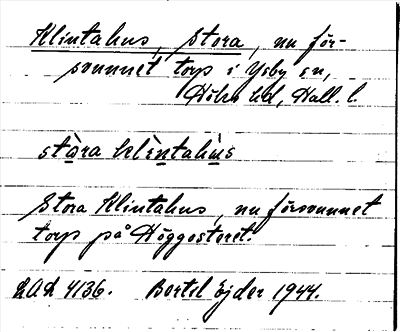 Klintahus, Stora, nu för-
svunnet torp i Ysby sn,
Höks hd, Hall. l.
stòra klìntahùs
Stora Klintahus, nu försvunnet
torp på Höggostoret.
LAL 4136. Bertil Ejder 1944.